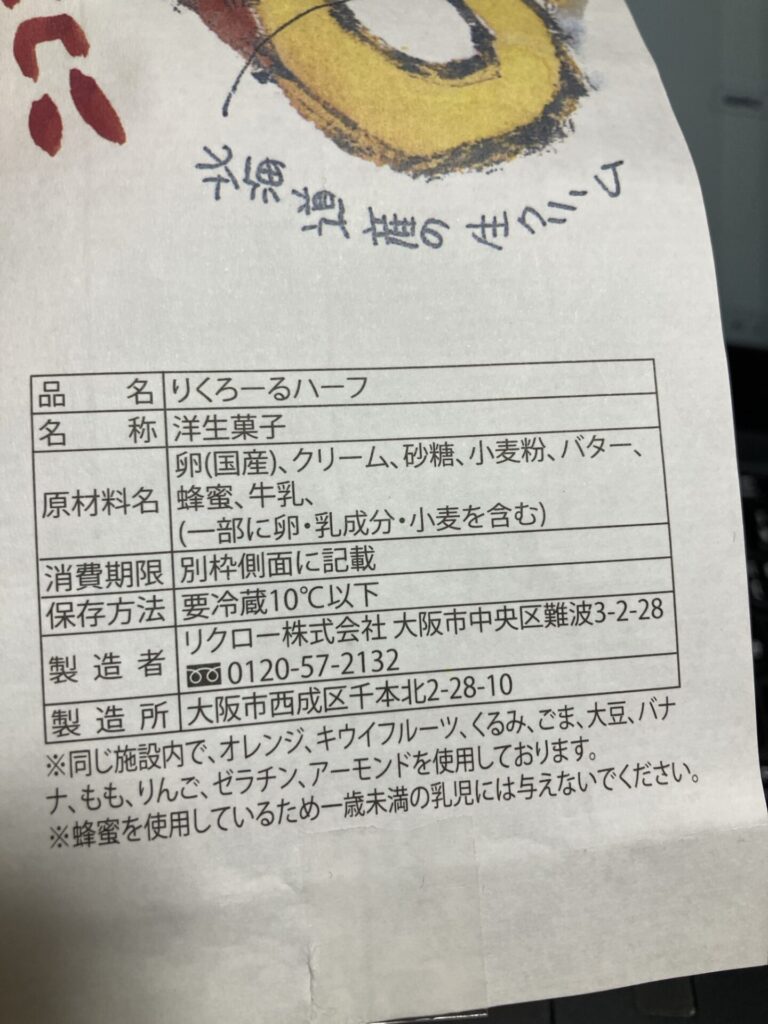 北海道産の生クリーム
品名 りくろーるハーフ
名称 洋生菓子
原材料名 卵(国産)、クリーム、砂糖、小麦粉、バター、
蜂蜜、牛乳、
(一部に卵・乳成分・小麦を含む)
消費期限 別枠側面に記載
保存方法 要冷蔵10℃以下
製造者 リクロー株式会社 大阪市中央区難波3-2-28
0120-57-2132
製造所 大阪市西成区千本北2-28-10
※同じ施設内で、オレンジ、キウイフルーツ、くるみ、ごま、大豆、バナ
ナ、もも、りんご、ゼラチン、アーモンドを使用しております。
※蜂蜜を使用しているため一歳未満の乳児には与えないでください。